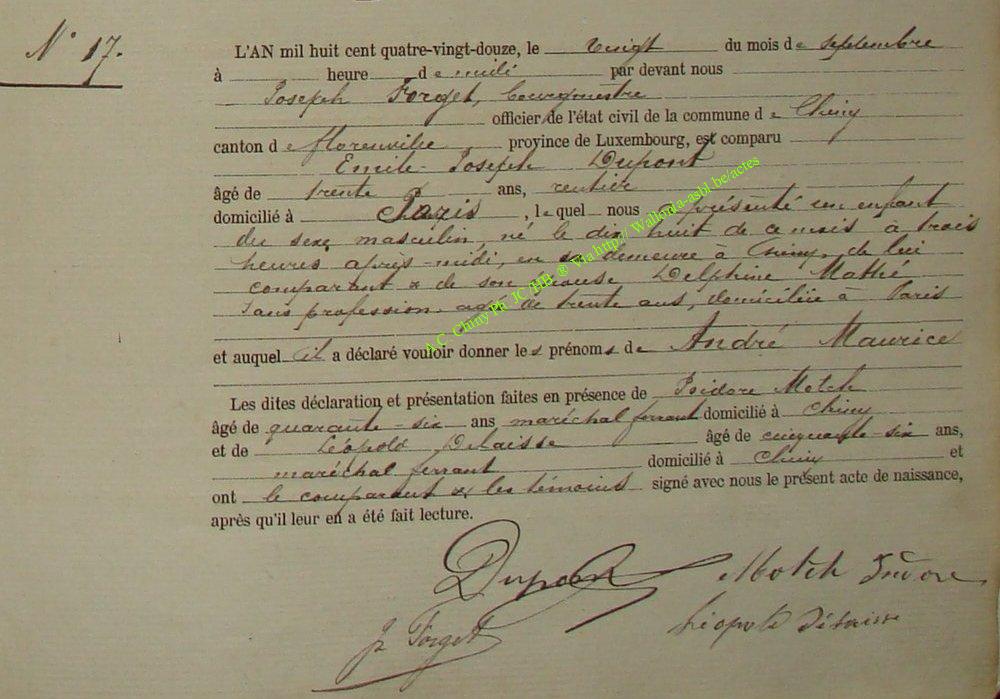 N° 17.
L'AN mil huit cent quatre-vingt-douze, le vingt du mois de septembre
à heure de midi par devant nous
Joseph Forget, bourgmestre
officier de l'état civil de la commune de Chiny
canton de Florenville province de Luxembourg, est comparu
Emile-Joseph Dupont
âgé de trente ans, rentier
domicilié à Paris, lequel nous a présenté un enfant
du sexe masculin, né le dix huit de ce mois à trois
heures après-midi, en sa demeure à Chiny, de lui
comparant & de son épouse Delphine Mathé
sans profession agée de trente ans, domiciliée à Paris
et auquel il a déclaré vouloir donner les prénoms de André Maurice
Les dites déclaration et présentation faites en présence de Isidore Motch
âgé de quarante-six ans maréchal ferrant domicilié à Chiny
et de Léopold Delaisse âgé de cinquante-six ans,
maréchal ferrant domicilié à Chiny et
ont le comparant & les témoins signé avec nous le présent acte de naissance,
après qu'il leur en a été fait lecture.
Dupont Motch Isidore
J. Forget Léopold Delaisse
A.C. Chiny Ph JC/HB ® Via http:// Wallonia-asbl.be/actes